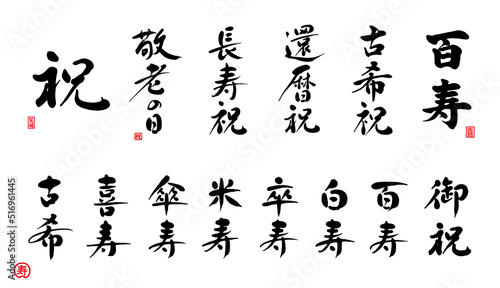 百寿
古希祝
還暦祝
長寿祝
敬老の日
祝
御祝
百寿
白寿
卒寿
米寿
傘寿
喜寿
古希
寿
Adobe Stock | #516961445